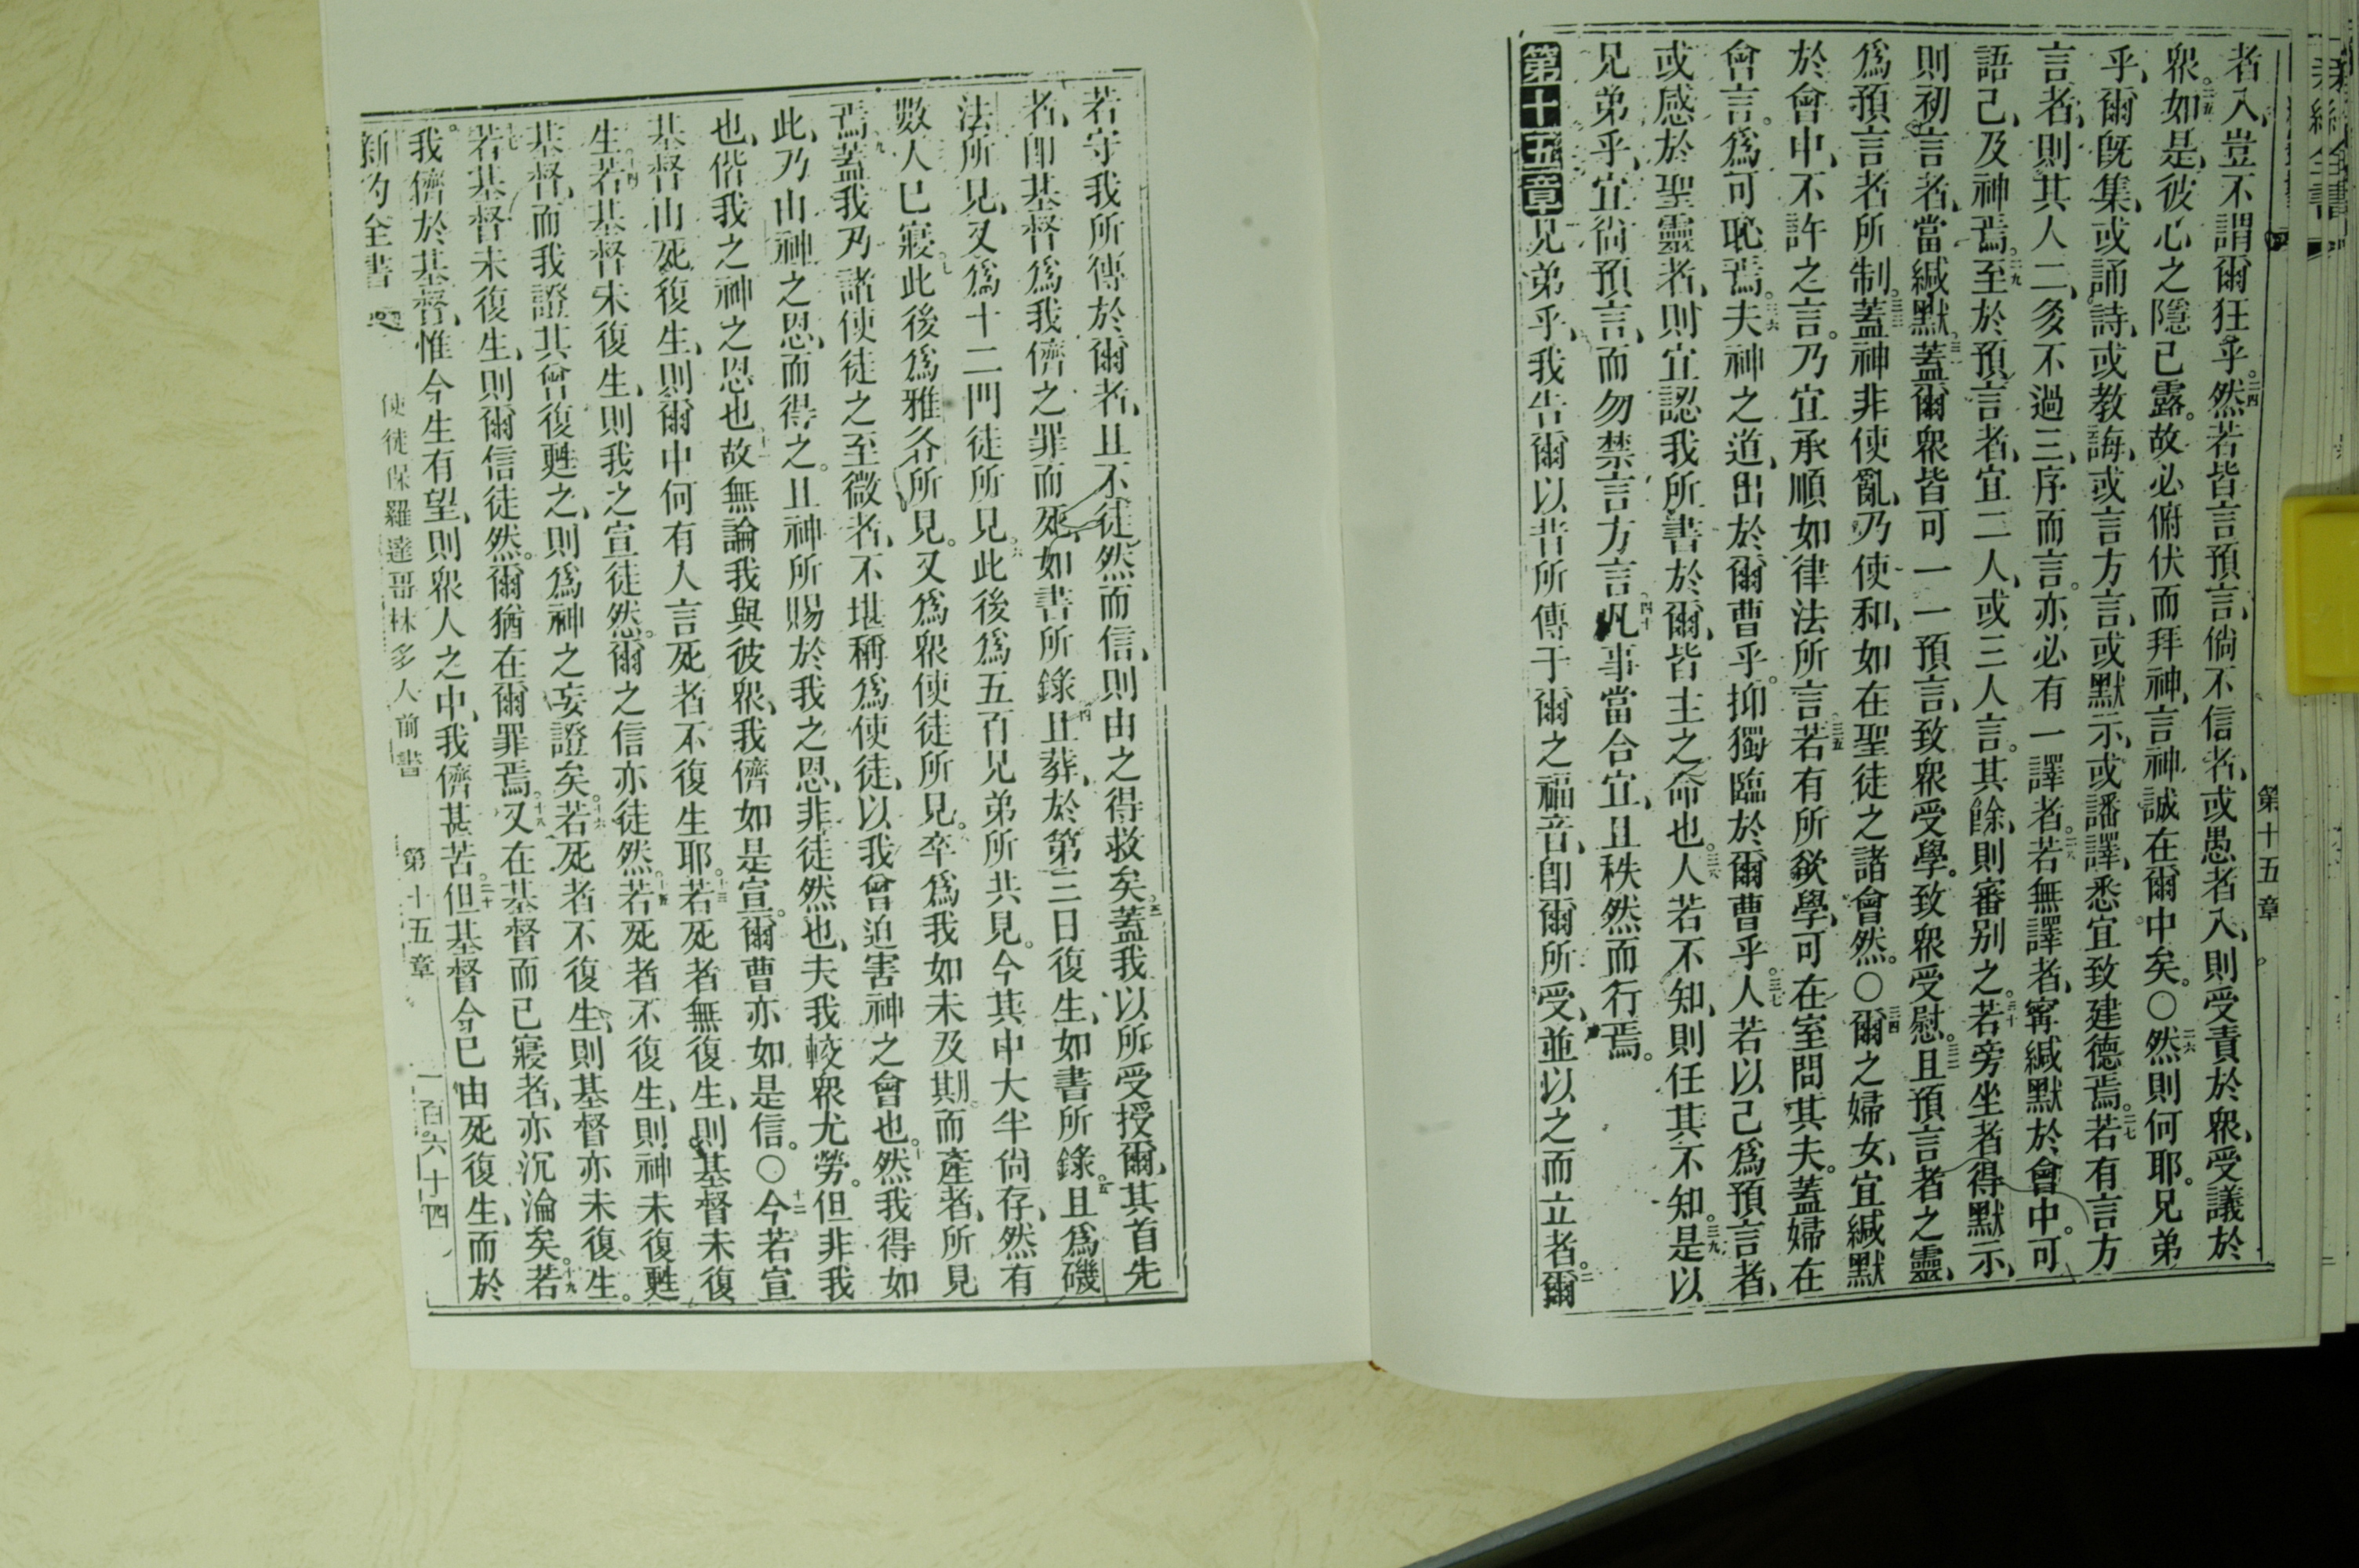 第十五章
者入、豈不謂爾狂乎。二四然若皆言預言、倘不信者、或愚者入、則受責於衆、受議於
衆。二五如是、彼心之隱已露。故必俯伏而拜神、言神誠在爾中矣。〇二六然則何耶。兄弟
乎、爾旣集、或誦詩、或教誨、或言方言、或默示、或譒譯、悉宜致建德焉。二七若有言方
言者、則其人二、多不過三、序而言。亦必有一譯者。二八若無譯者、寗緘默於會中。可
語己、及神焉。二九至於預言者、宜二人、或三人言。其餘、則審別之。三十若旁坐者得默示、
則初言者、當緘默。三一蓋爾衆皆可一一預言、致衆受學。致衆受慰。三二且預言者之靈、
爲預言者所制。三三蓋神非使亂、乃使和、如在聖徒之諸會然。〇三四爾之婦女、宜緘默
於會中、不許之言。乃宜承順如律法所言。三五若有所欲學、可在室問其夫。蓋婦在
會言。爲可恥焉。三六夫神之道、出於爾曹乎。抑獨臨於爾曹乎。三七人若以己爲預言者、
或感於聖靈者、則宜認我所書於爾、皆主之命也。三八人若不知、則任其不知。三九是以
兄弟乎、宜尙預言、而勿禁言方言。四十凡事當合宜、且秩然而行焉。
第十五章兄弟乎、我告爾以昔所傳于爾之福音、卽爾所受、並以之而立者。二爾
若守我所傳於爾者、且不徒然而信、則由之得救矣。三蓋我以所受授爾、其首先
者、卽基督爲我儕之罪而死、如書所錄。四且葬、於第三日復生、如書所錄。五且爲磯
法所見、又爲十二門徒所見。六此後爲五百兄弟所共見。今其中大半尙存、然有
數人已寢。七此後爲雅各所見。又爲衆使徒所見。八卒爲我如未及期而產者、所見
焉。九蓋我乃諸使徒之至微者、不堪稱爲使徒、以我曾迫害神之會也。十然我得如
此、乃由神之恩、而得之。且神所賜於我之恩、非徒然也、夫我較衆尤勞。但非我
也、偕我之神之恩也。十一故無論我與彼衆、我儕如是宣。爾曹亦如是信。〇十二今若宣
基督由死復生、則爾中何有人言死者不復生耶。十三若死者無復生、則基督未復
生。十四若基督未復生、則我之宣徒然。爾之信亦徒然。十五若死者不復生、則神未復甦
基督、而我證其曾復甦之、則爲神之妄證矣。十六若死者不復生、則基督亦未復生。
十七若基督未復生、則爾信徒然。爾猶在爾罪焉。十八又在基督而已寢者、亦沉淪矣。十九若
我儕於基督、惟今生有望、則衆人之中、我儕甚苦。二十但基督今已由死復生、而於
新約全書 使徒保羅達哥林多人前書 第十五章 一百六十四